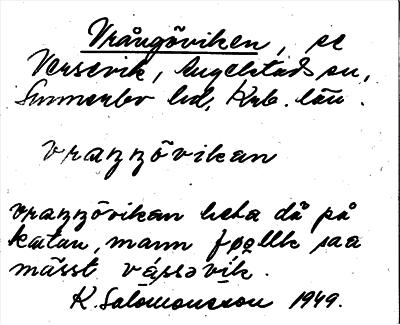 Vrångöviken, se
Versevik, Lugelstads sn,
Sunnerbo hd, Krb. län.
vraŋŋövikan
vraŋŋövikan heta då på
katan, mann føllk saa
mässt vássəvik.
K. Salomonsson 1949.